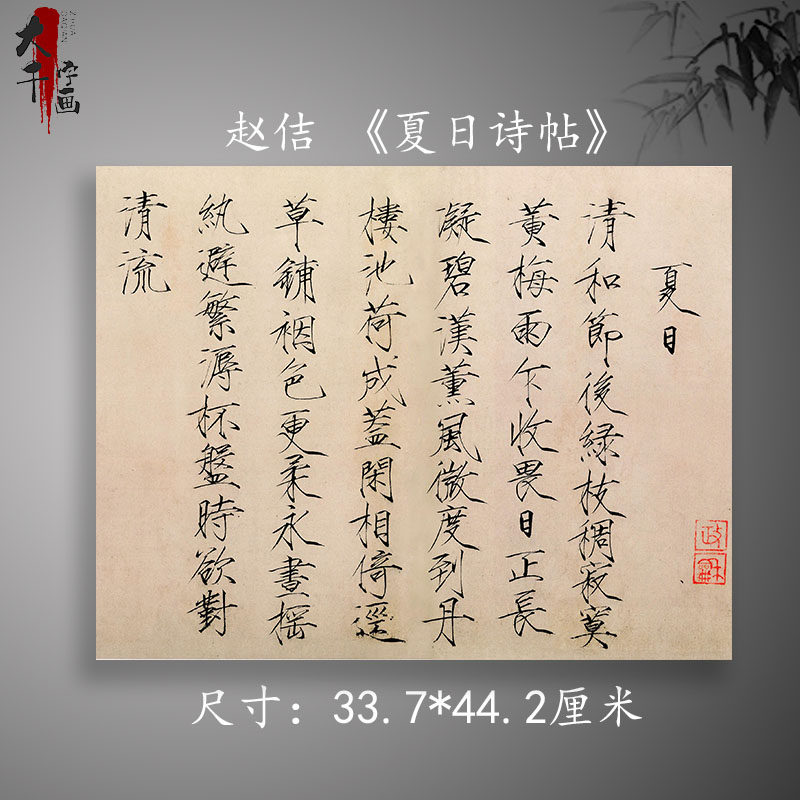 大千字画
赵佶 《夏日诗帖》
夏日
清和節後緑枝稠寂寞
黄梅雨乍收畏日正長
凝碧漢薰風微度到丹
樓池荷成蓋閑相倚逕
草鋪裀色更柔永晝搖
紈避繁溽杯盤時欲對
清流
政龢
尺寸：33.7*44.2厘米